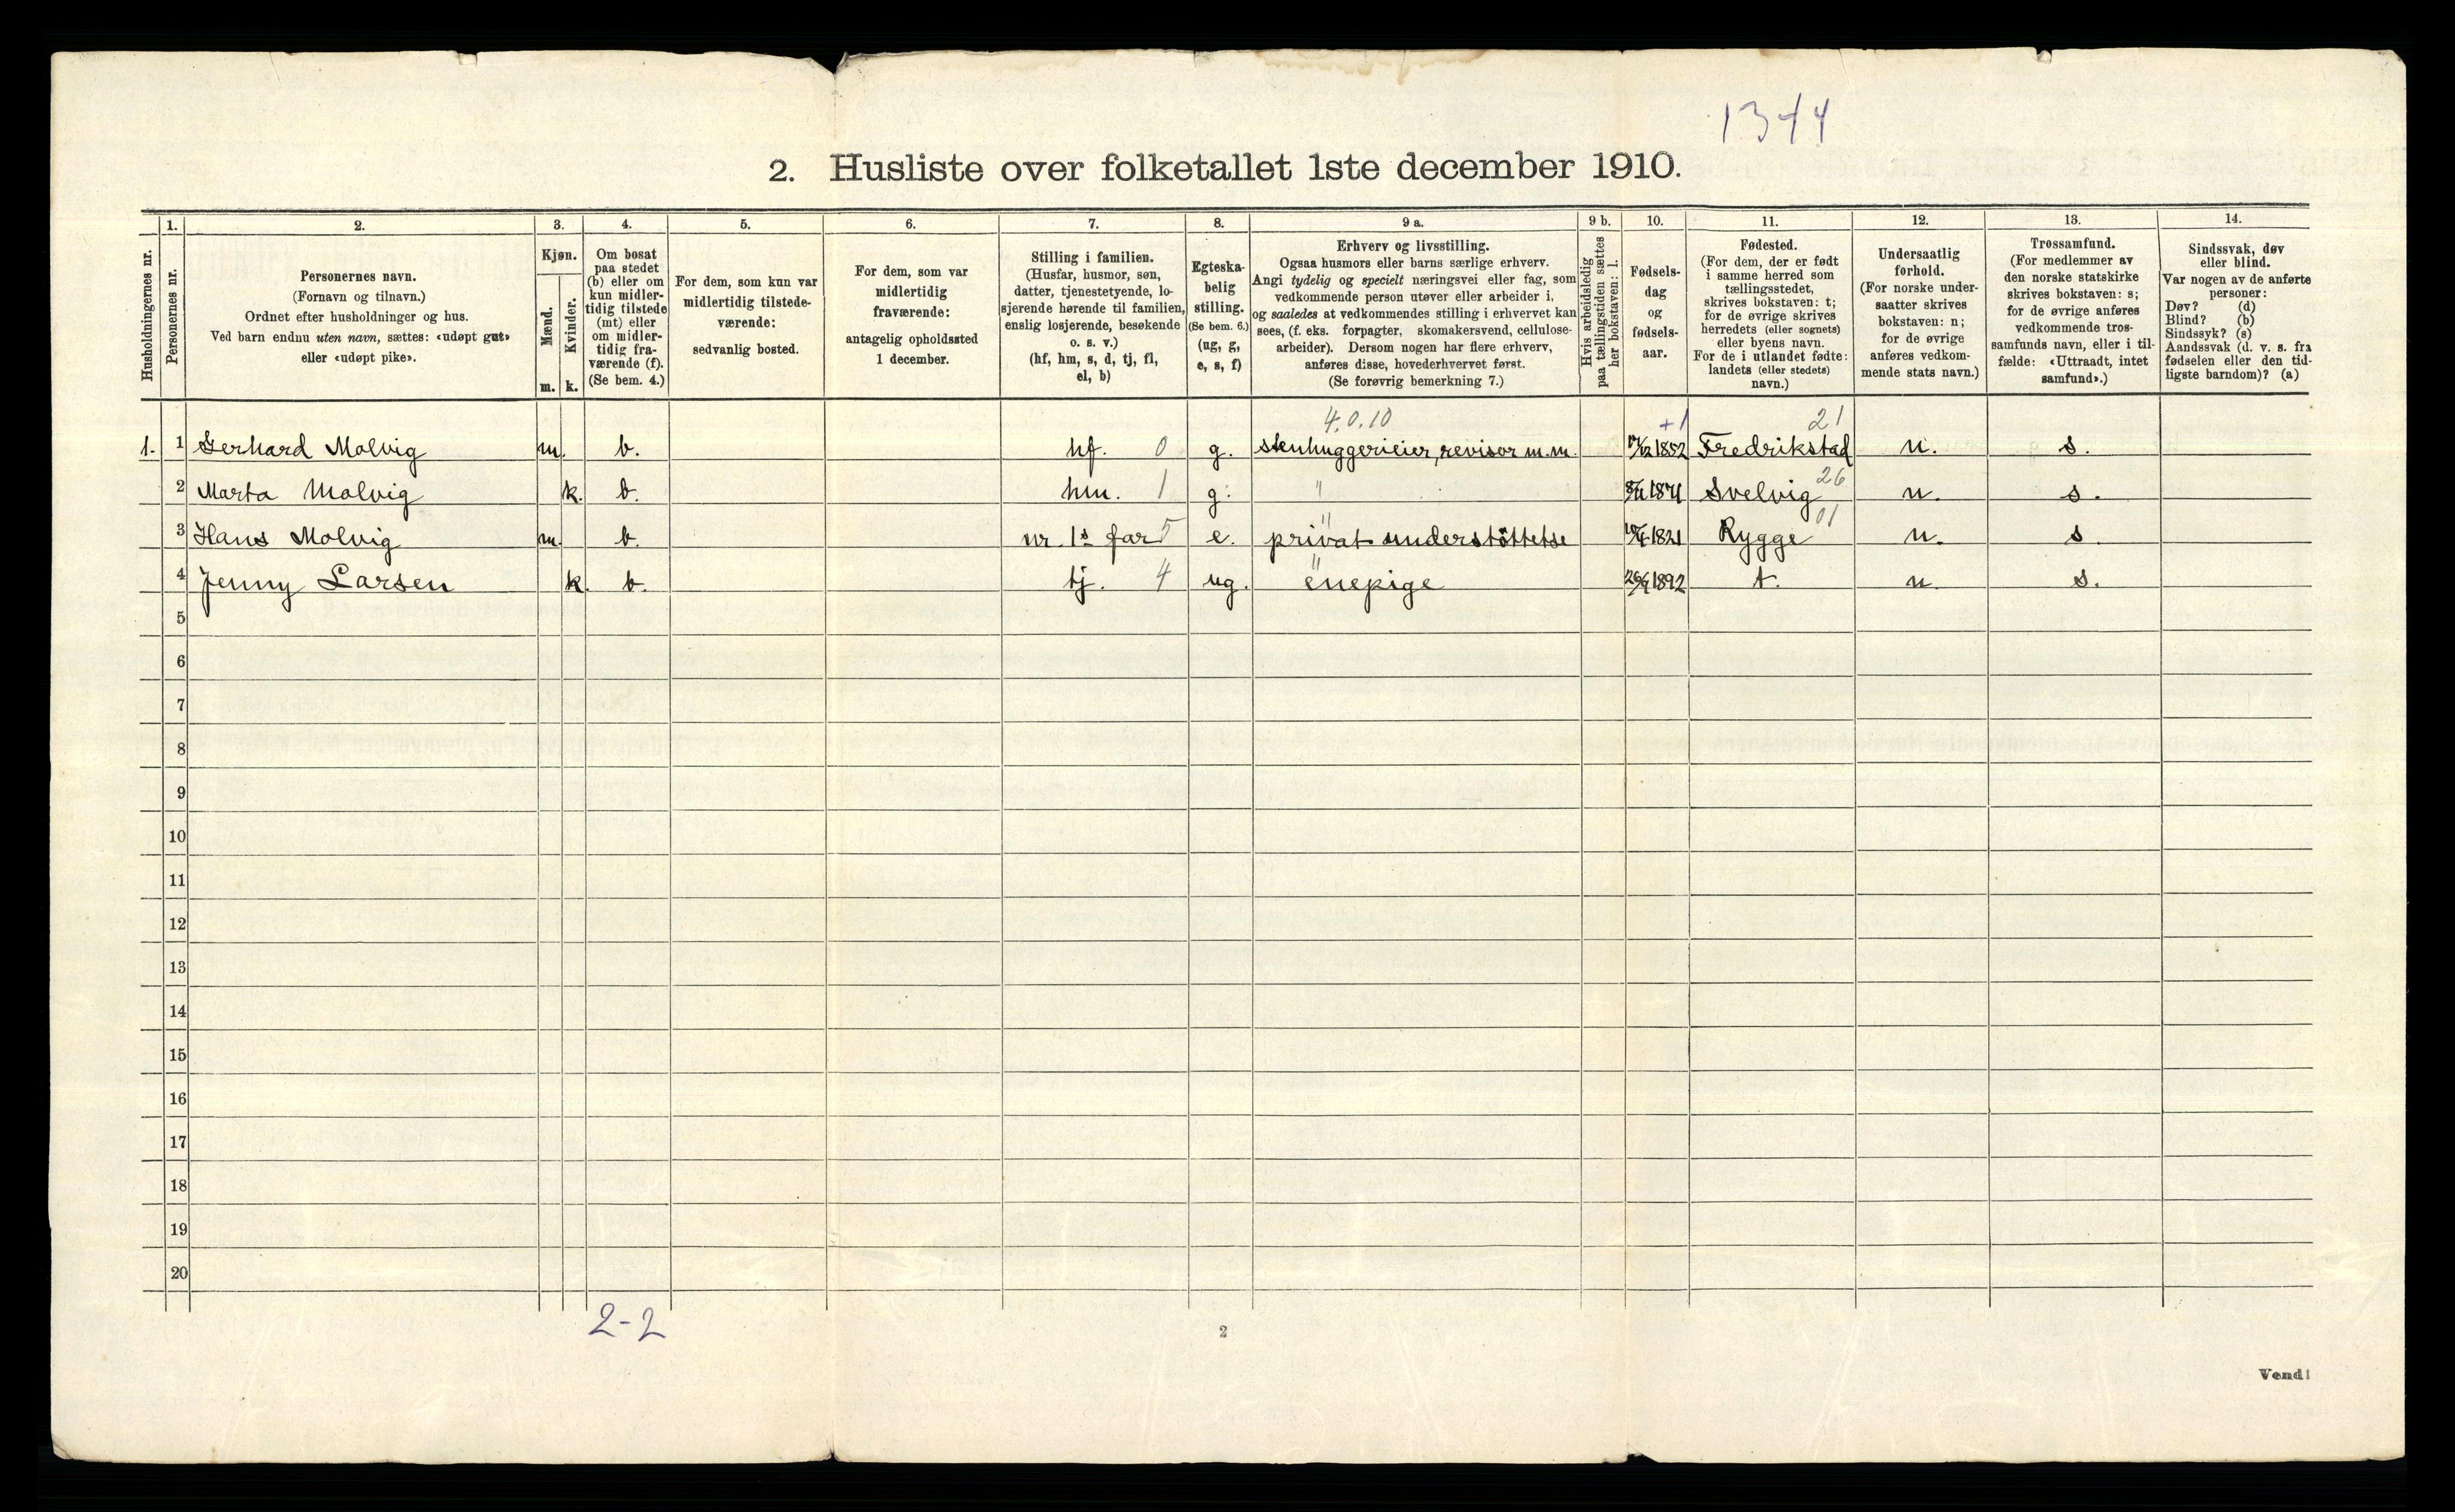 1344
2. Husliste over folketallet 1ste december 1910.
1. 2. 3. 4. 5. 6. 7. 8. 9 a. 9 b. 10. 11. 12. 13. 14.
Husholdningernes nr.
Personernes nr.
Personernes navn.
(Fornavn og tilnavn.)
Ordnet efter husholdninger og hus.
Ved barn endnu uten navn, sættes: «udøpt gut»
eller «udøpt pike».
Kjøn.
Mænd.
m.
Kvinder.
k.
Om bosat
paa stedet
(b) eller om
kun midler-
tidig tilstede
(mt) eller
om midler-
tidig fra-
værende (f).
(Se bem. 4.)
For dem, som kun var
midlertidig tilstede-
værende:
sedvanlig bosted.
For dem, som var
midlertidig
fraværende:
antagelig opholdssted
1 december.
Stilling i familien.
(Husfar, husmor, søn,
datter, tjenestetyende, lo-
sjerende hørende til familien,
enslig losjerende, besøkende
o. s. v.)
(hf, hm, s, d, tj, fl,
el, b)
Egteska-
belig
stilling.
(Se bem. 6.)
(ug, g,
e, s, f)
Erhverv og livsstilling.
Ogsaa husmors eller barns særlige erhverv.
Angi tydelig og specielt næringsvei eller fag, som
vedkommende person utøver eller arbeider i,
og saaledes at vedkommendes stilling i erhvervet kan
sees, (f. eks. forpagter, skomakersvend, cellulose-
arbeider). Dersom nogen har flere erhverv,
anføres disse, hovederhvervet først.
(Se forøvrig bemerkning 7.)
Hvis arbeidsledig
paa tællingstiden sættes
her bokstaven: l.
Fødsels-
dag
og
fødsels-
aar.
Fødested.
(For dem, der er født
i samme herred som
tællingsstedet,
skrives bokstaven: t;
for de øvrige skrives
herredets (eller sognets)
eller byens navn.
For de i utlandet fødte:
landets (eller stedets)
navn.)
Undersaatlig
forhold.
(For norske under-
saatter skrives
bokstaven: n;
for de øvrige
anføres vedkom-
mende stats navn.)
Trossamfund.
(For medlemmer av
den norske statskirke
skrives bokstaven: s;
for de øvrige anføres
vedkommende tros-
samfunds navn, eller i til-
fælde: «Uttraadt, intet
samfund».)
Sindssvak, døv
eller blind.
Var nogen av de anførte
personer:
Døv? (d)
Blind? (b)
Sindssyk? (s)
Aandssvak (d. v. s. fra
fødselen eller den tid-
ligste barndom)? (a)
4.0.10 +1 21
1. 1 Gerhard Molvig m. b. hf. 0 g. stenhuggerieier, revisor m.m. 1852 Fredrikstad n. s.
26
2 Marta Molvig k. b. hm. 1 g. " 1871 Svelvig n. s.
01
3 Hans Molvig m. b. nr. 1s far 5 e. privat understöttelse 1821 Rygge n. s.
4 Jenny Larsen k. b. tj. 4 ug. enepige 1892 t. n. s.
5
6
7
8
9
10
11
12
13
14
15
16
17
18
19
20
2-2
2
Vend!